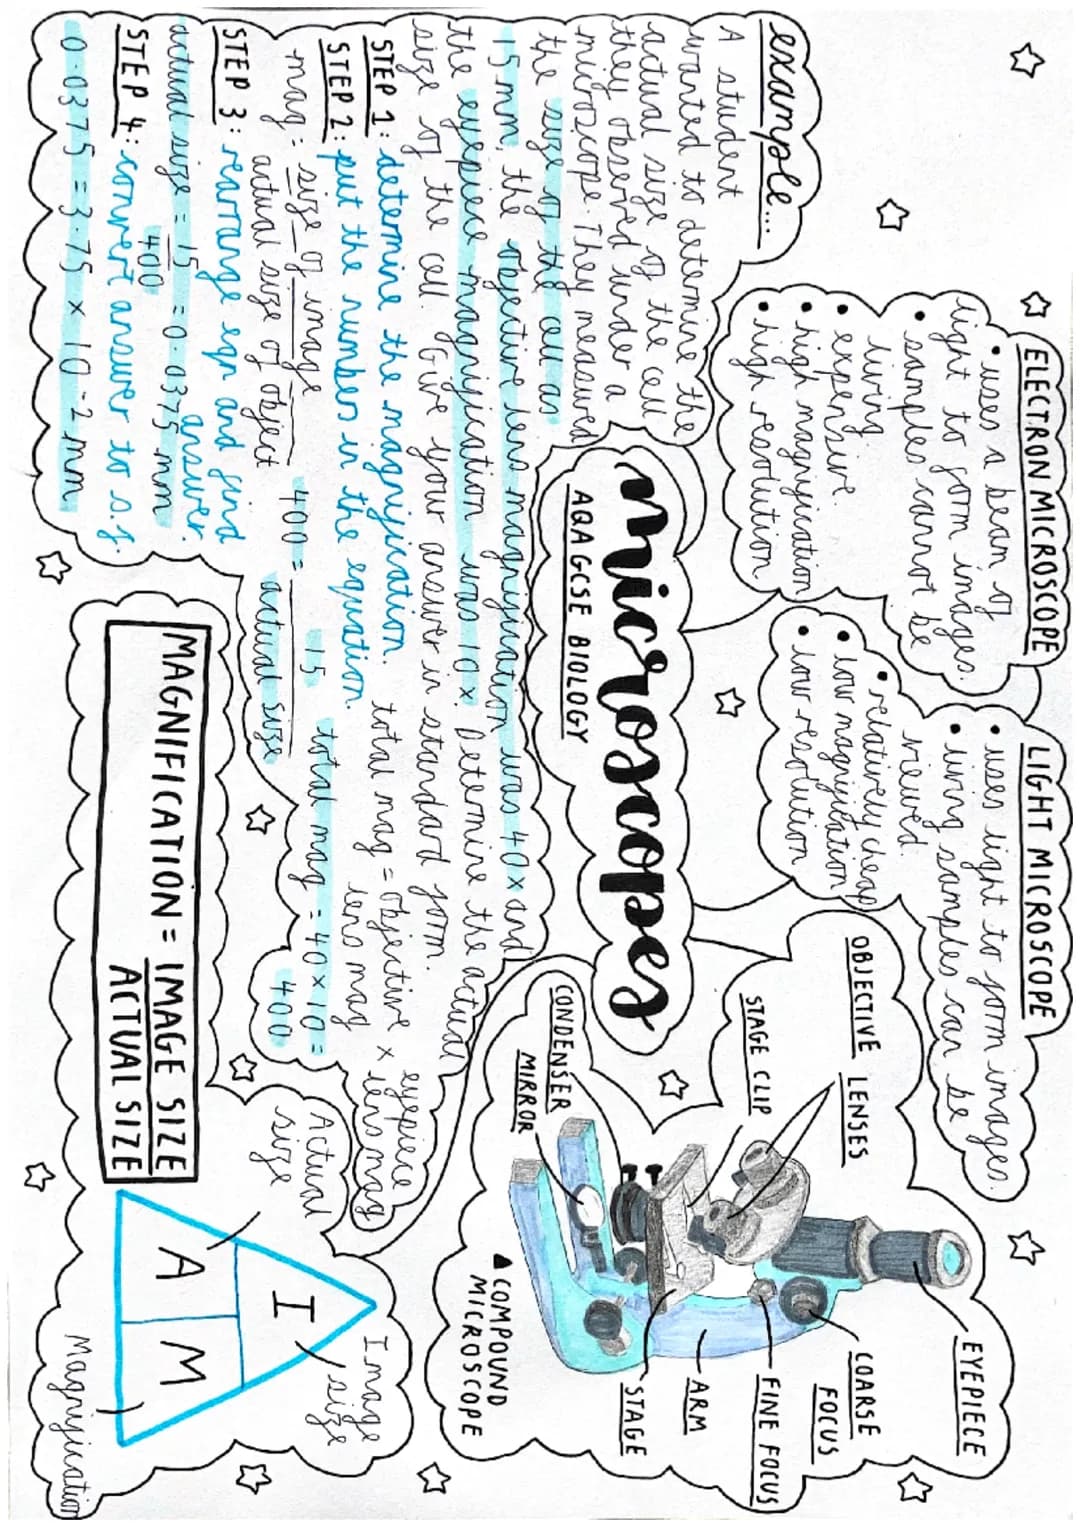 microscopes
AQA GCSE BIOLOGY
ELECTRON MICROSCOPE
• uses a beam of
light to form images.
• samples cannot be
living
• expensive
• high magnification
• high resolution
LIGHT MICROSCOPE
• uses light to form images.
• living samples can be
viewed.
• relatively cheap
• low magnification
• low resolution
OBJECTIVE LENSES
STAGE CLIP
CONDENSER
MIRROR
EYEPIECE
COARSE
FOCUS
FINE FOCUS
ARM
STAGE
▲ COMPOUND
MICROSCOPE
example...
A student
wanted to determine the
actual size of the cell
they observed under a
microscope. They measured
the size of the cell as
15 mm, the objective lens magnification was 40x and
the eyepiece magnification was 10x. Determine the actual
size of the cell. Give your answer in standard form.
STEP 1: determine the magnification.
total mag = objective x eyepiece
lens mag lens mag
total mag = 40 x 10 =
400
STEP 2: put the number in the equation.
mag = size of image
actual size of object
400 = 15
actual size
STEP 3: rearrange eqn and find
answer.
actual size = 15 = 0.0375 mm
400
STEP 4: convert answer to s.f.
0.0375 = 3.75 x 10 -2 mm
MAGNIFICATION = IMAGE SIZE
ACTUAL SIZE
Actual
size
Image
size
I
A M
Magnification